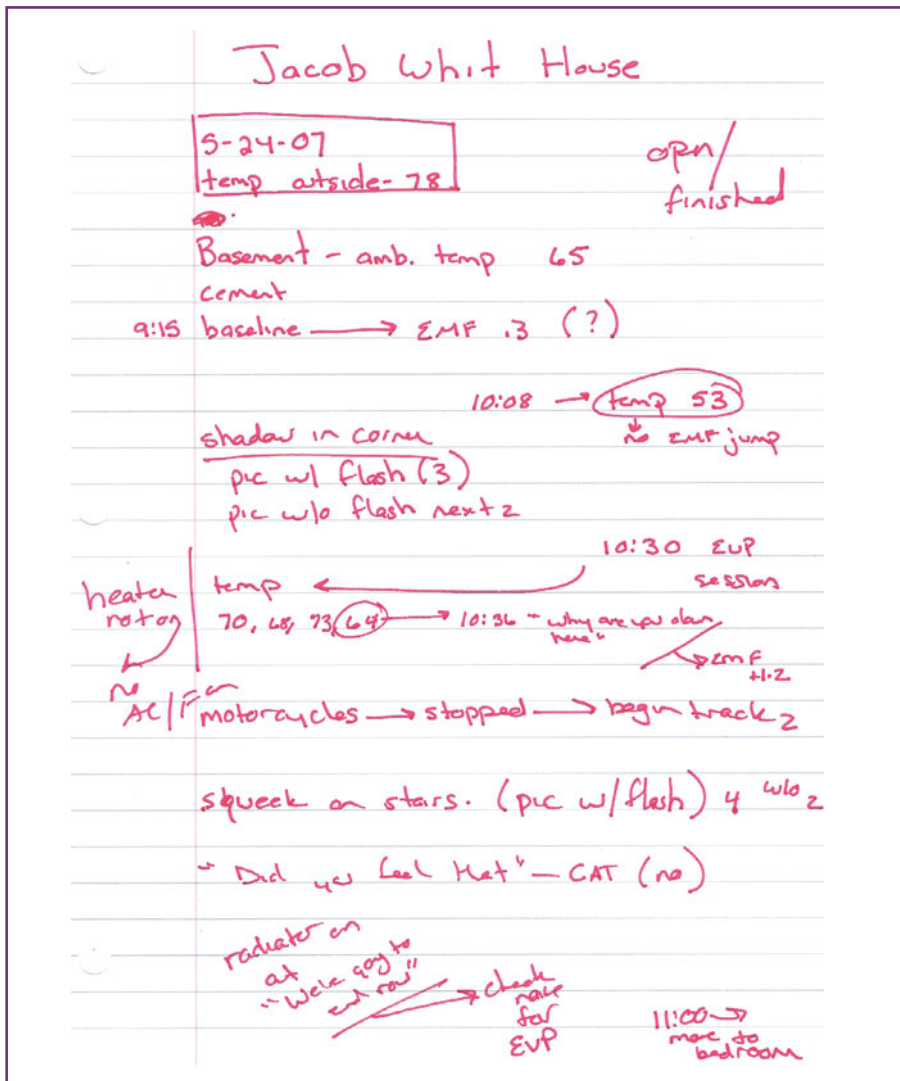 Jacob Whit House
5-24-07
temp outside- 78
open/
finished
Basement - amb. temp 65
cement
9:15 baseline → EMF .3 (?)
10:08 → temp 53
no EMF jump
shadow in corner
pic w/ flash (3)
pic w/o flash next 2
10:30 EVP
session
heater
not on
temp
70, 68, 73, 64 → 10:36 - "why are you down
here"
EMF
+1.2
no
AC/Fan
motorcycles → stopped → begin track 2
squeek on stars. (pic w/flash) 4 w/o 2
"Did you feel that" - CAT (no)
radiator on
at
"We're going to
end now"
check
noise
for
EVP
11:00 →
move to
bedroom